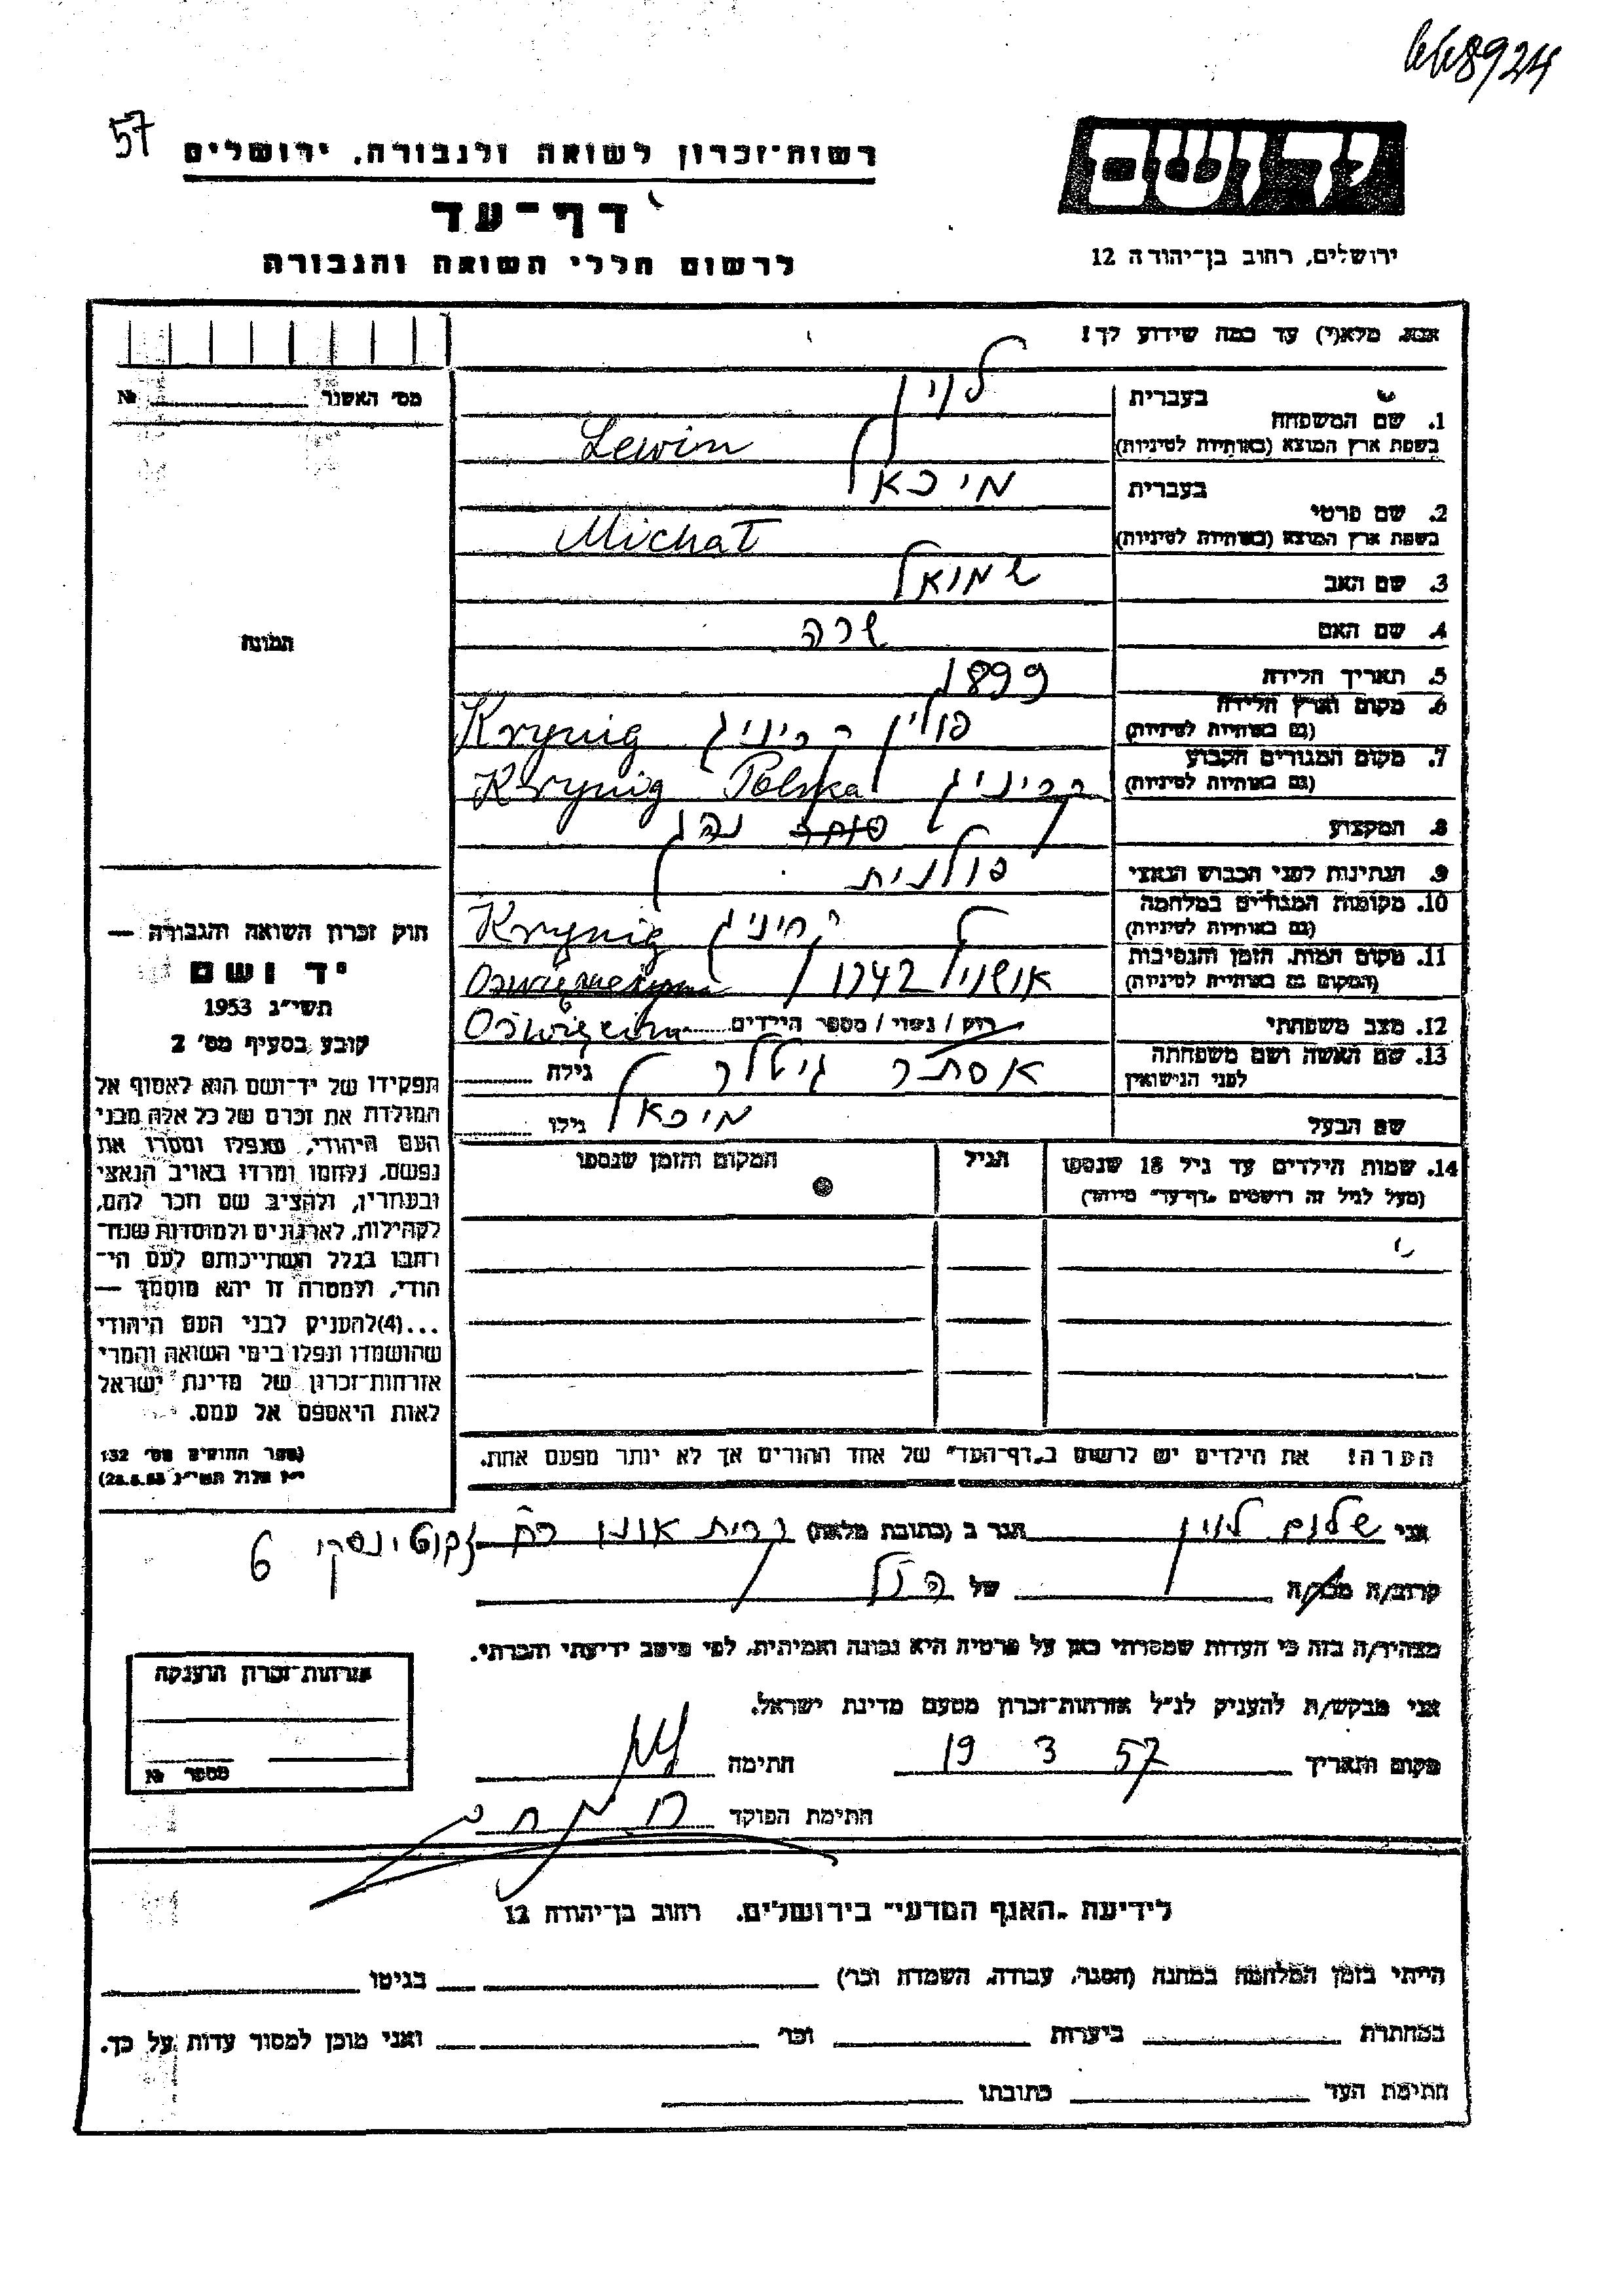 668924
57
רשות־זכרון לשואה ולגבורה, ירושלים
יד ושם
דף־עד
ירושלים, רחוב בן־יהודה 12
לרשום חללי השואה והגבורה
אנא, מלא(י) עד כמה שידוע לך!
מס׳ האשנר № 
בעברית לוין
1. שם המשפחה
בשפת ארץ המוצא (באותיות לטיניות) Lewin
בעברית מיכאל
2. שם פרטי
בשפת ארץ המוצא (באותיות לטיניות) Michał
3. שם האב שמואל
4. שם האם שרה
התמונה
5. תאריך הלידה 1899
6. מקום וארץ הלידה פולין קריניג Krynig
(גם באותיות לטיניות)
7. מקום המגורים הקבוע קריניג Polska Krynig
(גם באותיות לטיניות)
8. המקצוע סוחר נהג
9. הנתינות לפני הכבוש הנאצי פולנית
10. מקומות המגורים במלחמה קריניג Krynig
(גם באותיות לטיניות)
11. מקום המות, הזמן והנסיבות 1942
(המקום גם באותיות לטיניות)
12. מצב משפחתי רווק / נשוי / מספר הילדים Oświęcim
13. שם האשה ושם משפחתה אסתר גיטלר גילה
לפני הנישואין
שם הבעל מיכאל גילו
14. שמות הילדים עד גיל 18 שנספו הגיל המקום והזמן שנספו
(מעל לגיל זה רושמים „דף־עד״ מיוחד)
חוק זכרון השואה והגבורה —
יד ושם
תשי״ג 1953
קובע בסעיף מס׳ 2
תפקידו של יד־ושם הוא לאסוף אל
המולדת את זכרם של כל אלה מבני
העם היהודי, שנפלו ומסרו את
נפשם, נלחמו ומרדו באויב הנאצי
ובעוזריו, ולהציב שם וזכר להם,
לקהילות, לארגונים ולמוסדות שנח־
רבו בגלל השתייכותם לעם הי־
הודי, ולמטרה זו יהא מוסמך —
...(4)להעניק לבני העם היהודי
שהושמדו ונפלו בימי השואה והמרי
אזרחות־זכרון של מדינת ישראל
לאות היאספם אל עמם.
(ספר החוקים מס׳ 132
י״ז אלול תשי״ג 28.8.53)
הערה! את הילדים יש לרשום ב„דף־העד״ של אחד ההורים אך לא יותר מפעם אחת.
אני שלום לוין הגר ב (כתובת מלאה) קרית אונו רח ז׳בוטינסקי 6
קרוב/ה מכר/ה של הנ״ל
מצהיר/ה בזה כי העדות שמסרתי כאן על פרטיה היא נכונה ואמיתית, לפי מיטב ידיעתי והכרתי.
אני מבקש/ת להעניק לנ״ל אזרחות־זכרון מטעם מדינת ישראל.
מקום ותאריך 19 3 57 חתימה
חתימת הפוקד
אזרחות־זכרון הוענקה
מספר №
לידיעת „האגף המדעי״ בירושלים. רחוב בן־יהודה 12
הייתי בזמן המלחמה במחנה (הסגר, עבודה, השמדה וכו׳) בגיטו
במחתרת ביערות וכו׳ ואני מוכן למסור עדות על כך.
חתימת העד כתובתו